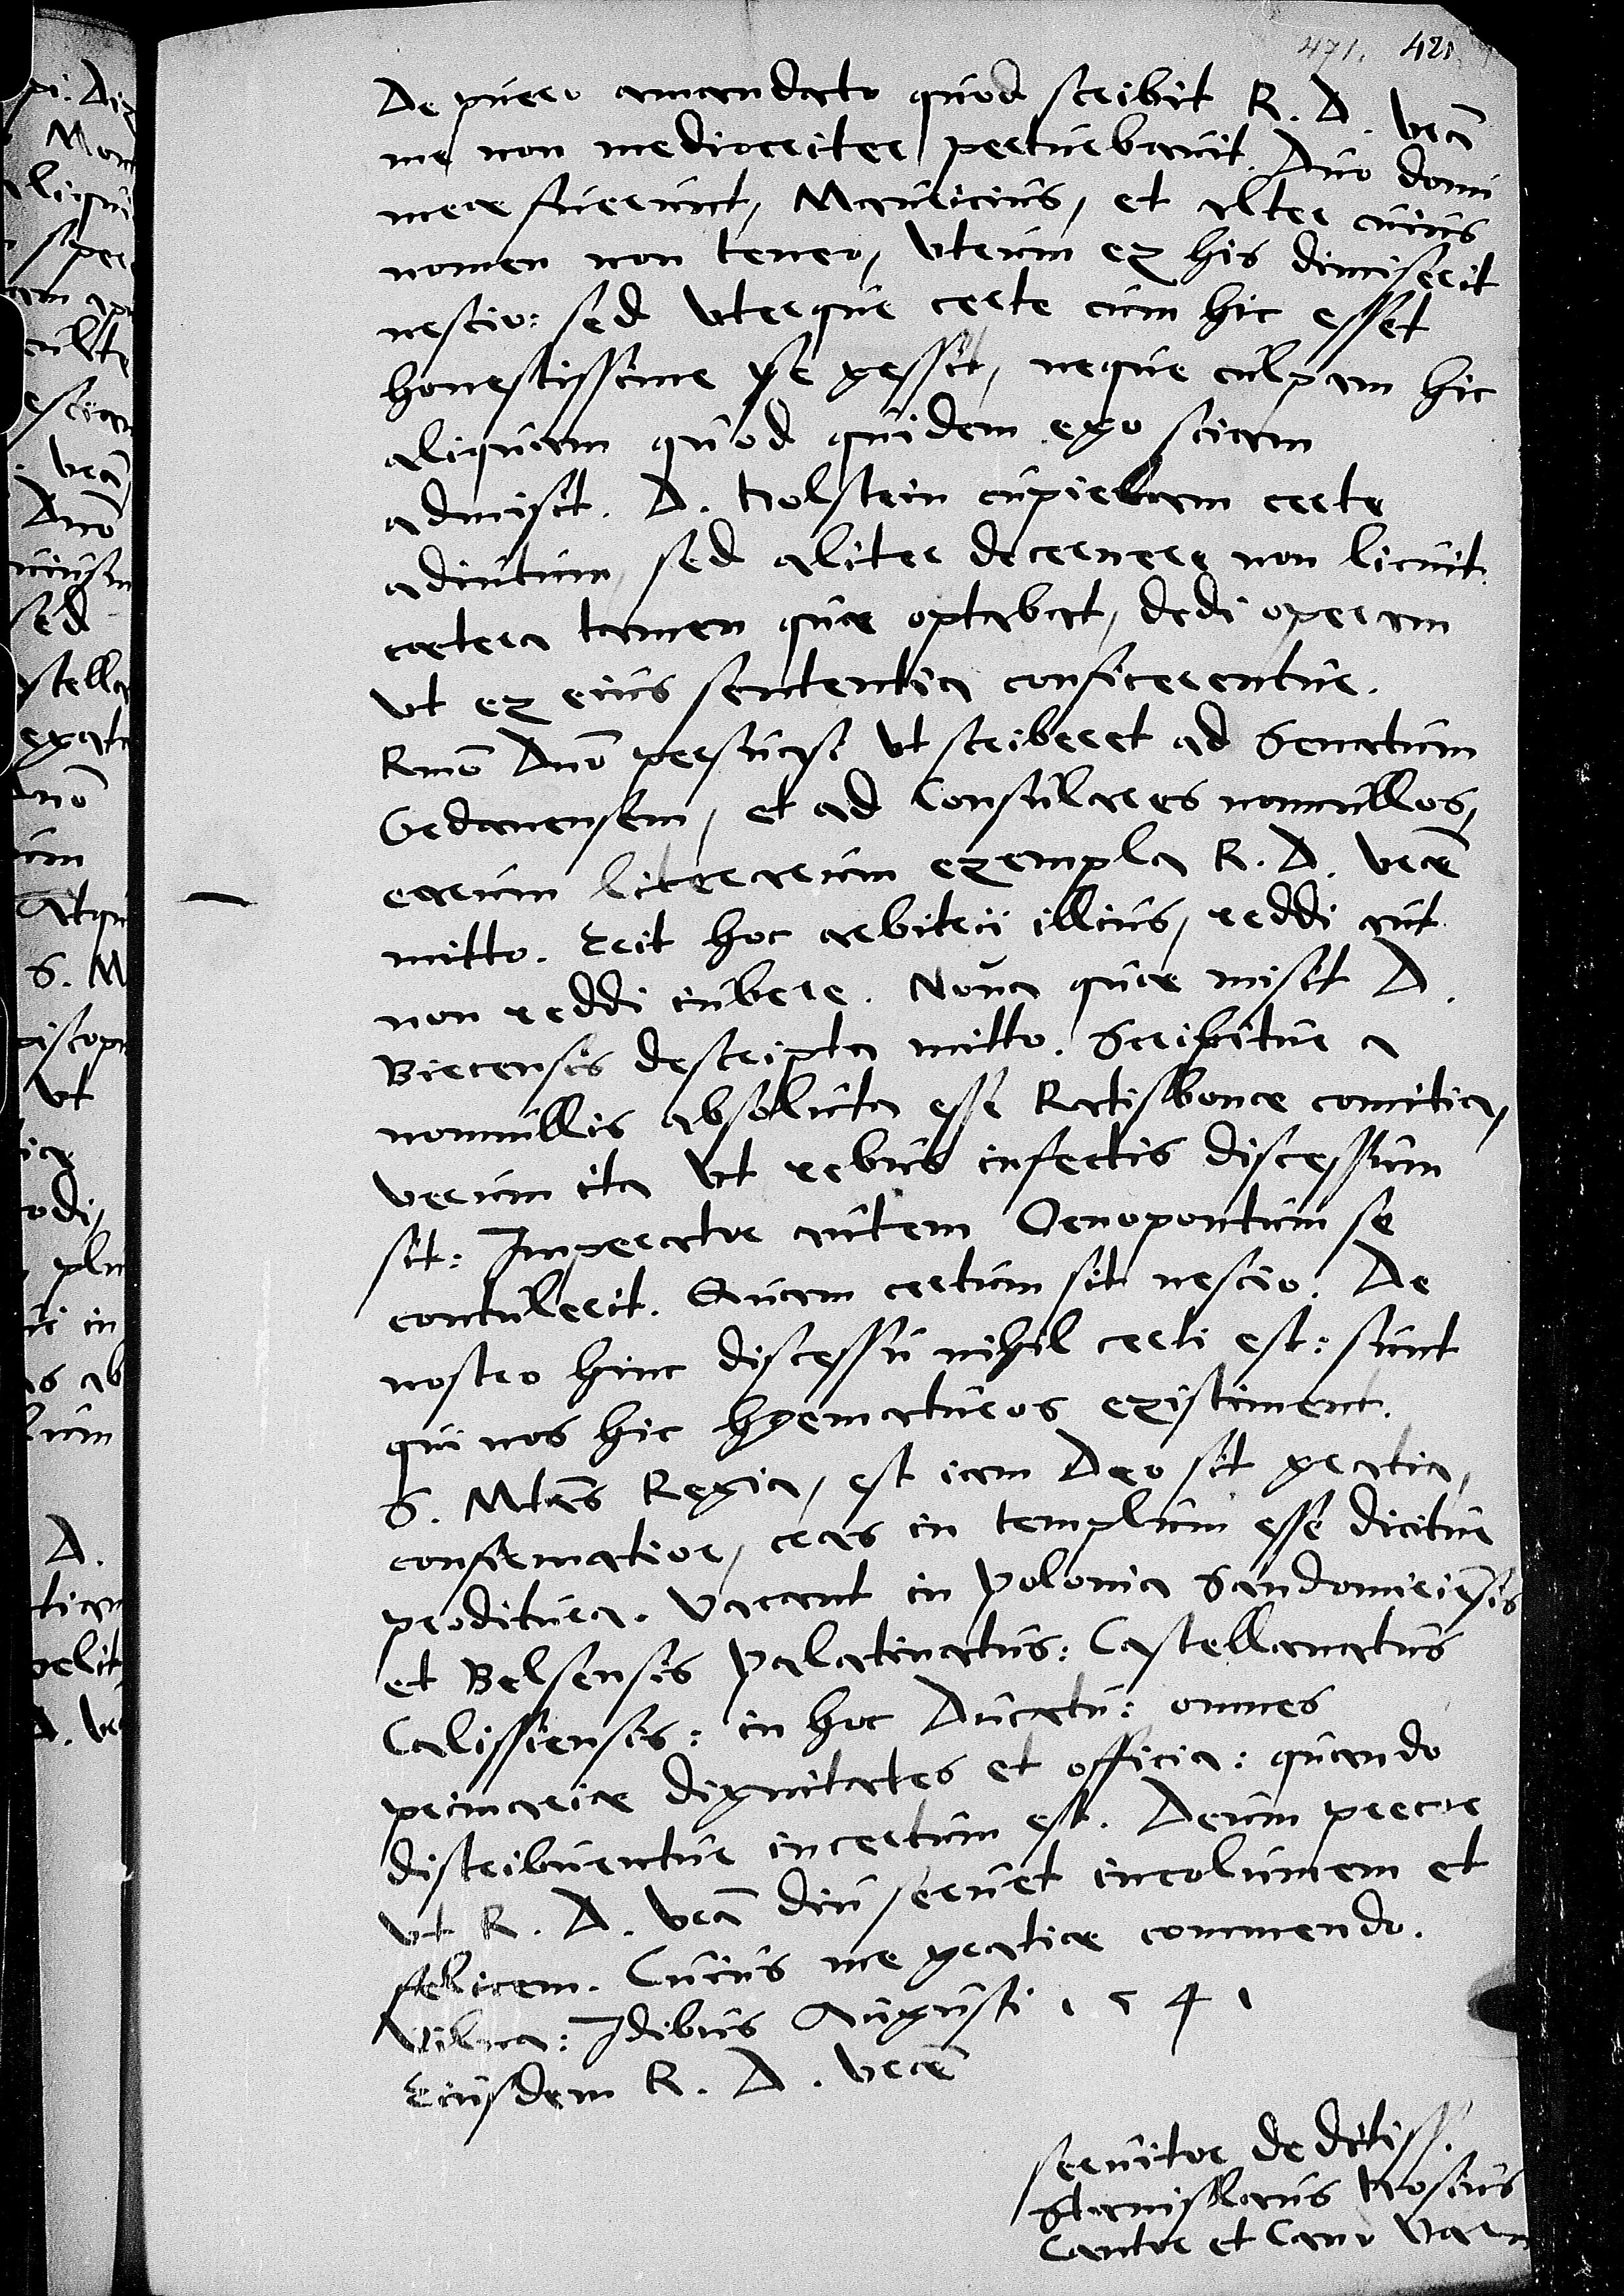 471. 421
De puero amandato quod scribit R. D. vra
me non mediocriter perturbauit. Duo domi
meae fuerunt, Mauricius, et alter cuius
nomen non teneo, vtrum ex his dimiserit
nescio: sed vterque certe cum hic esset
honestissime se gessit, neque culpam hic
aliquam quod quidem ego sciam
admisit. D. Holstein cupiebam certe
adiutum, sed aliter decernere non licuit.
caetera tamen quae optabat, dedi operam
vt ex eius sententia conficerentur.
Rmo Dno persuasi vt scriberet ad Senatum
Gedanensem, et ad Consulares nonnullos,
earum literarum exempla R. D. vrae
mitto. Erit hoc arbitrii illius, reddi aut
non reddi iubere. Noua quae misit D.
Biecensis descripta mitto. Scribitur a
nonnullis absoluta esse Ratisbonae comitia,
verum ita vt rebus infectis discessum
sit: Imperator autem Oenopontum se
contulerit. Quam certum sit nescio. De
nostro hinc discessu nihil certi est: sunt
qui nos hic hyematuros existiment.
S. Mtas Regia, est iam Deo sit gratia,
confirmatior, cras in templum esse dicitur
proditura. Vacant in Polonia Sandomiriensis
et Belsensis Palatinatus: Castellanatus
Calissiensis: in hoc Ducatu: omnes
primariae dignitates et officia: quando
distribuentur incertum est. Deum precor
vt R. D. vram diu seruet incolumem et
felicem. Cuius me gratiae commendo.
Vilna: Idibus Augusti 1541
Eiusdem R. D. vrae
seruitor deditiss.
Stanislaus Hosius
Cantor et Cano Varm